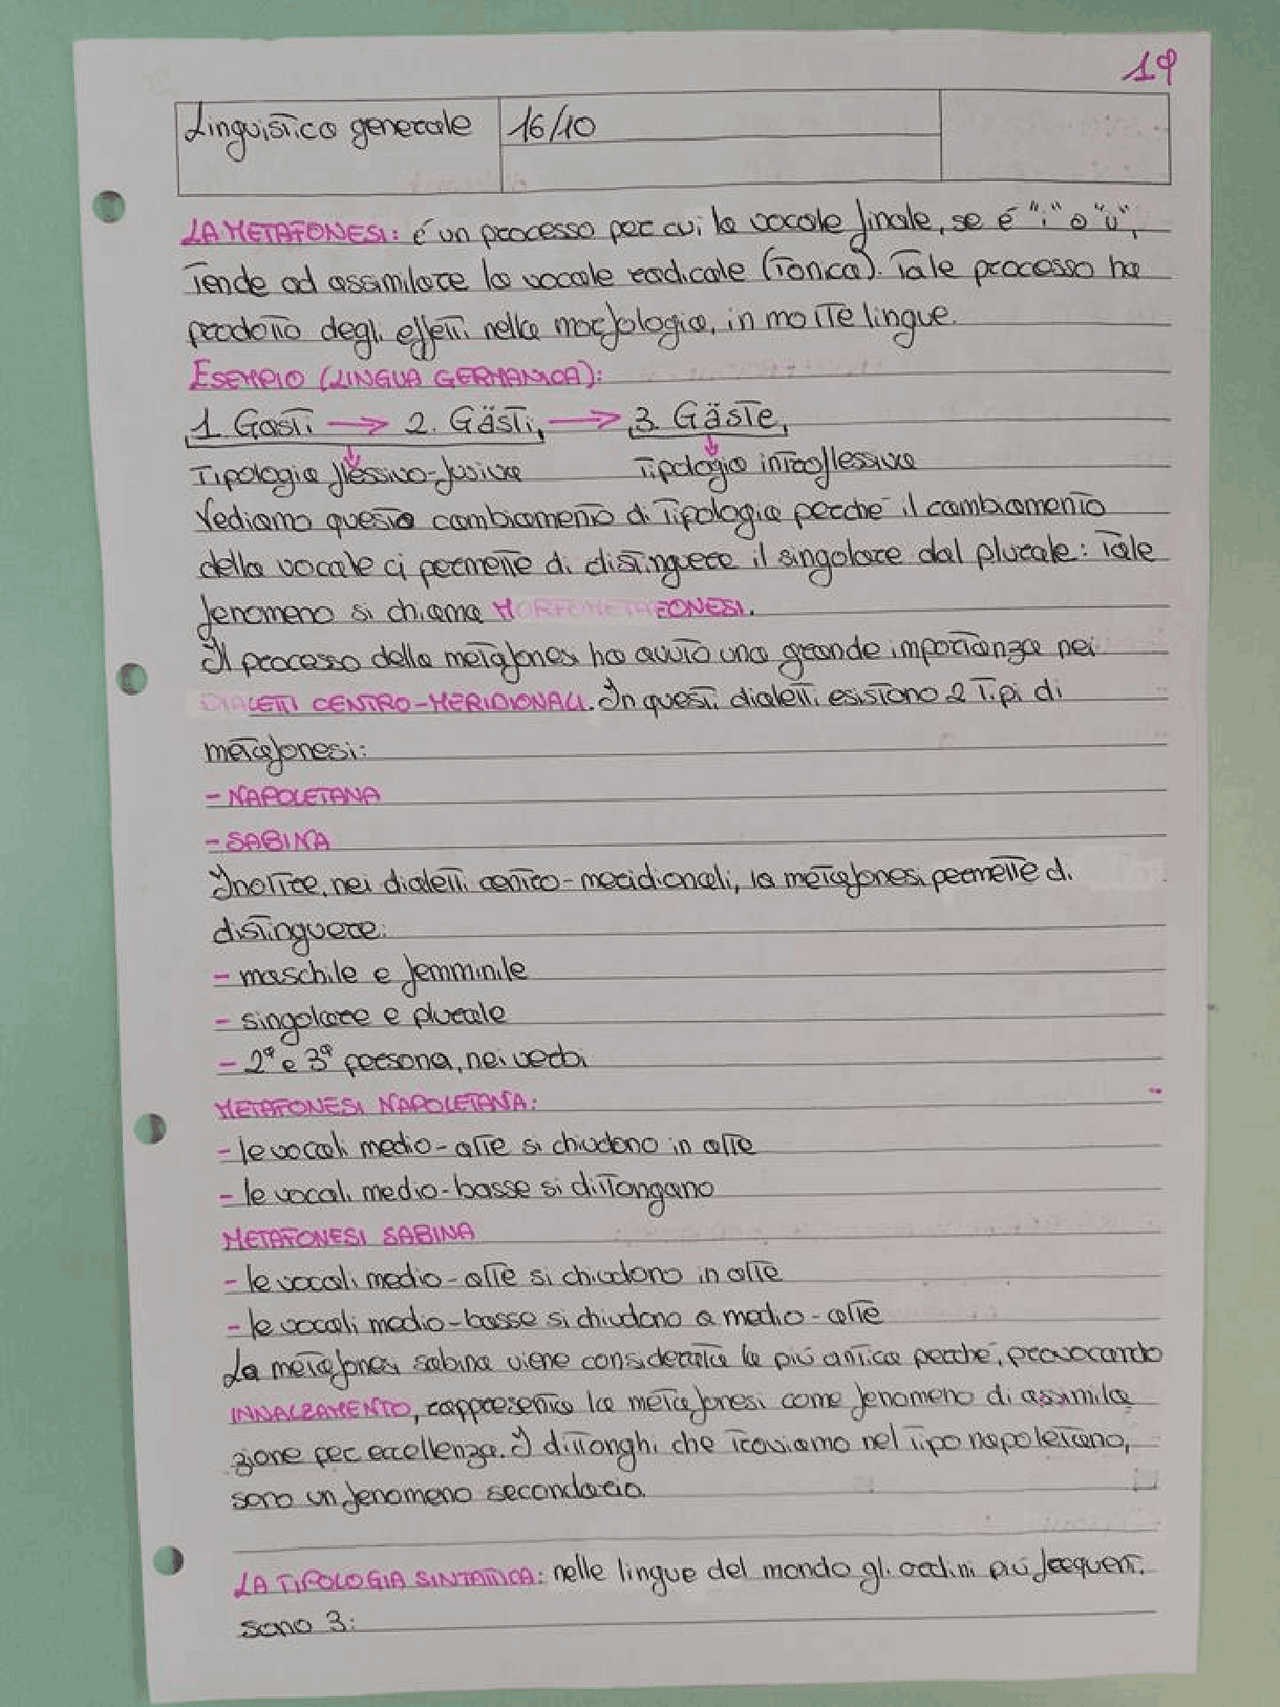 19
Linguistica generale 16/10
LA METAFONESI: é un processo per cui la vocale finale, se é "i" o "u",
tende ad assimilare la vocale radicale (tonica). Tale processo ha
prodotto degli effetti nella morfologia, in molte lingue.
ESEMPIO (LINGUA GERMANICA):
1. Gasti → 2. Gästi, → 3. Gäste,
Tipologia flessivo-fusiva Tipologia introflessiva
Vediamo questo cambiamento di tipologia perché il cambiamento
della vocale ci permette di distinguere il singolare dal plurale: Tale
fenomeno si chiama MORFOMETAFONESI.
Il processo della metafonesi ha avuto una grande importanza nei
DIALETTI CENTRO-MERIDIONALI. In questi dialetti esistono 2 tipi di
metafonesi:
- NAPOLETANA
- SABINA
Inoltre, nei dialetti centro-meridionali, la metafonesi permette di
distinguere:
- maschile e femminile
- singolare e plurale
- 2ª e 3ª persona, nei verbi
METAFONESI NAPOLETANA:
- le vocali medio-alte si chiudono in alte
- le vocali medio-basse si dittongano
METAFONESI SABINA
- le vocali medio-alte si chiudono in alte
- le vocali medio-basse si chiudono a medio-alte
La metafonesi sabina viene considerata la più antica perché, provocando
INNALZAMENTO, rappresenta la metafonesi come fenomeno di assimila
zione per eccellenza. I dittonghi che troviamo nel tipo napoletano,
sono un fenomeno secondario.
LA TIPOLOGIA SINTATTICA: nelle lingue del mondo gli ordini più frequenti
sono 3: